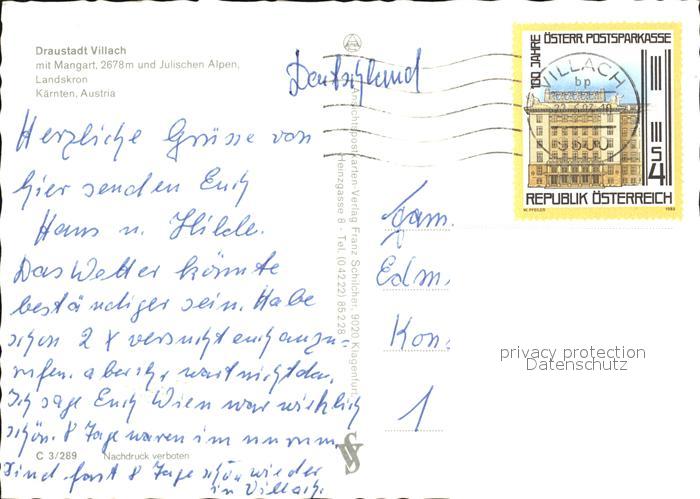 Draustadt Villach
mit Mangart, 2678 m und Julischen Alpen,
Landskron
Kärnten, Austria
Herzliche Grüsse von
hier senden Euch
Hans u. Hilde.
Das Wetter könnte
beständiger sein. Habe
schon 2 x versucht euch anzu-
rufen. aber ihr wart nicht da.
Ich sage Euch Wien war wirklich
schön. 8 Tage waren im
Sind fast 8 Tage schon wieder
in Villach.
C 3/289 Nachdruck verboten
Ansichtspostkarten-Verlag Franz Schilcher, 9020 Klagenfurt
Heinzgasse 8 - Tel. (0 42 22) 85 2 28
Deutschland
100 JAHRE ÖSTERR. POSTSPARKASSE
S 4
REPUBLIK ÖSTERREICH
W. PFEILER 1983
VILLACH
bp
Fam.
Edm.
Kon
1
privacy protection
Datenschutz